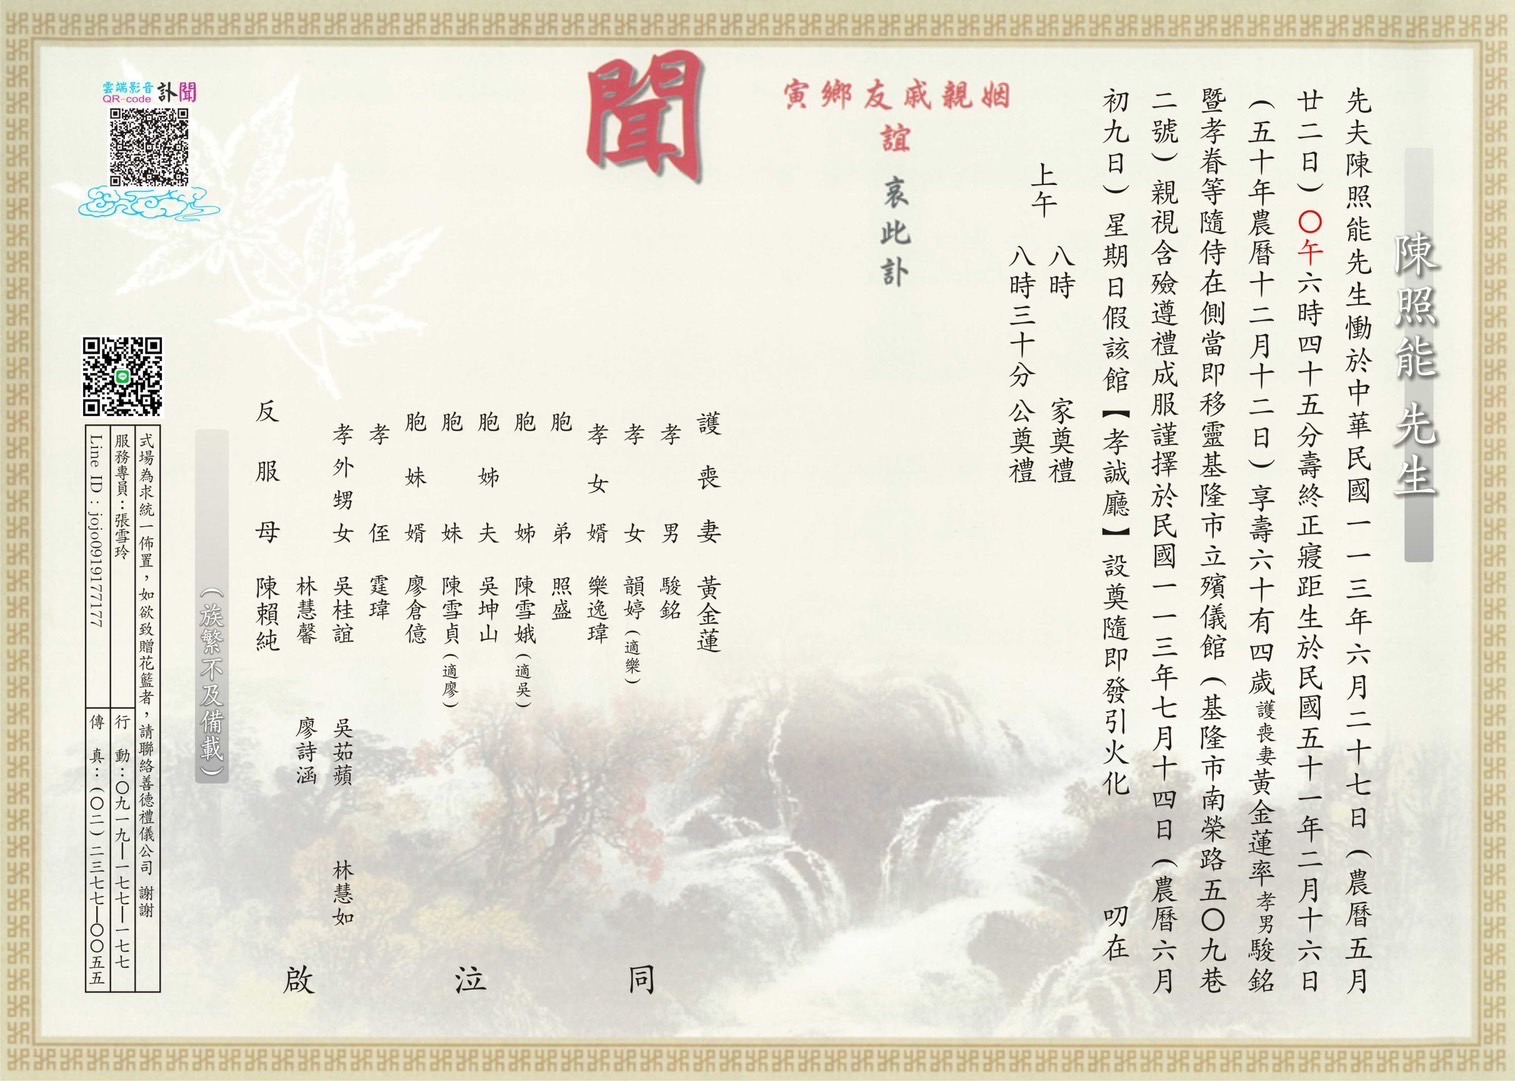 陳照能 先生
先夫陳照能先生慟於中華民國一一三年六月二十七日(農曆五月
廿二日)〇午六時四十五分壽終正寢距生於民國五十一年二月十六日
(五十年農曆十二月十二日)享壽六十有四歲護喪妻黃金蓮率孝男駿銘
暨孝眷等隨侍在側當即移靈基隆市立殯儀館(基隆市南榮路五〇九巷
二號)親視含殮遵禮成服謹擇於民國一一三年七月十四日(農曆六月
初九日)星期日假該館【孝誠廳】設奠隨即發引火化 叨在
上午
八時 家奠禮
八時三十分公奠禮
寅鄉友戚親姻
誼
哀此訃
聞
護喪妻 黃金蓮
孝男 駿銘
孝女 韻婷(適樂)
孝女婿 樂逸瑋
胞弟 照盛
胞姊 陳雪娥(適吳)
胞姊夫 吳坤山
胞妹 陳雪貞(適廖)
胞妹婿 廖倉億
孝侄 霆瑋
孝外甥女 吳桂誼 吳茹蘋 林慧如
林慧馨 廖詩涵
反服母 陳賴純
同泣啟
(族繁不及備載)
雲端影音
QR-code 訃聞
式場為求統一佈置，如欲致贈花籃者，請聯絡善德禮儀公司 謝謝
服務專員：張雪玲
行動：〇九一九—一七七—一七七
Line ID : jojo0919177177
傳真：(〇二)二三七七—〇〇五五